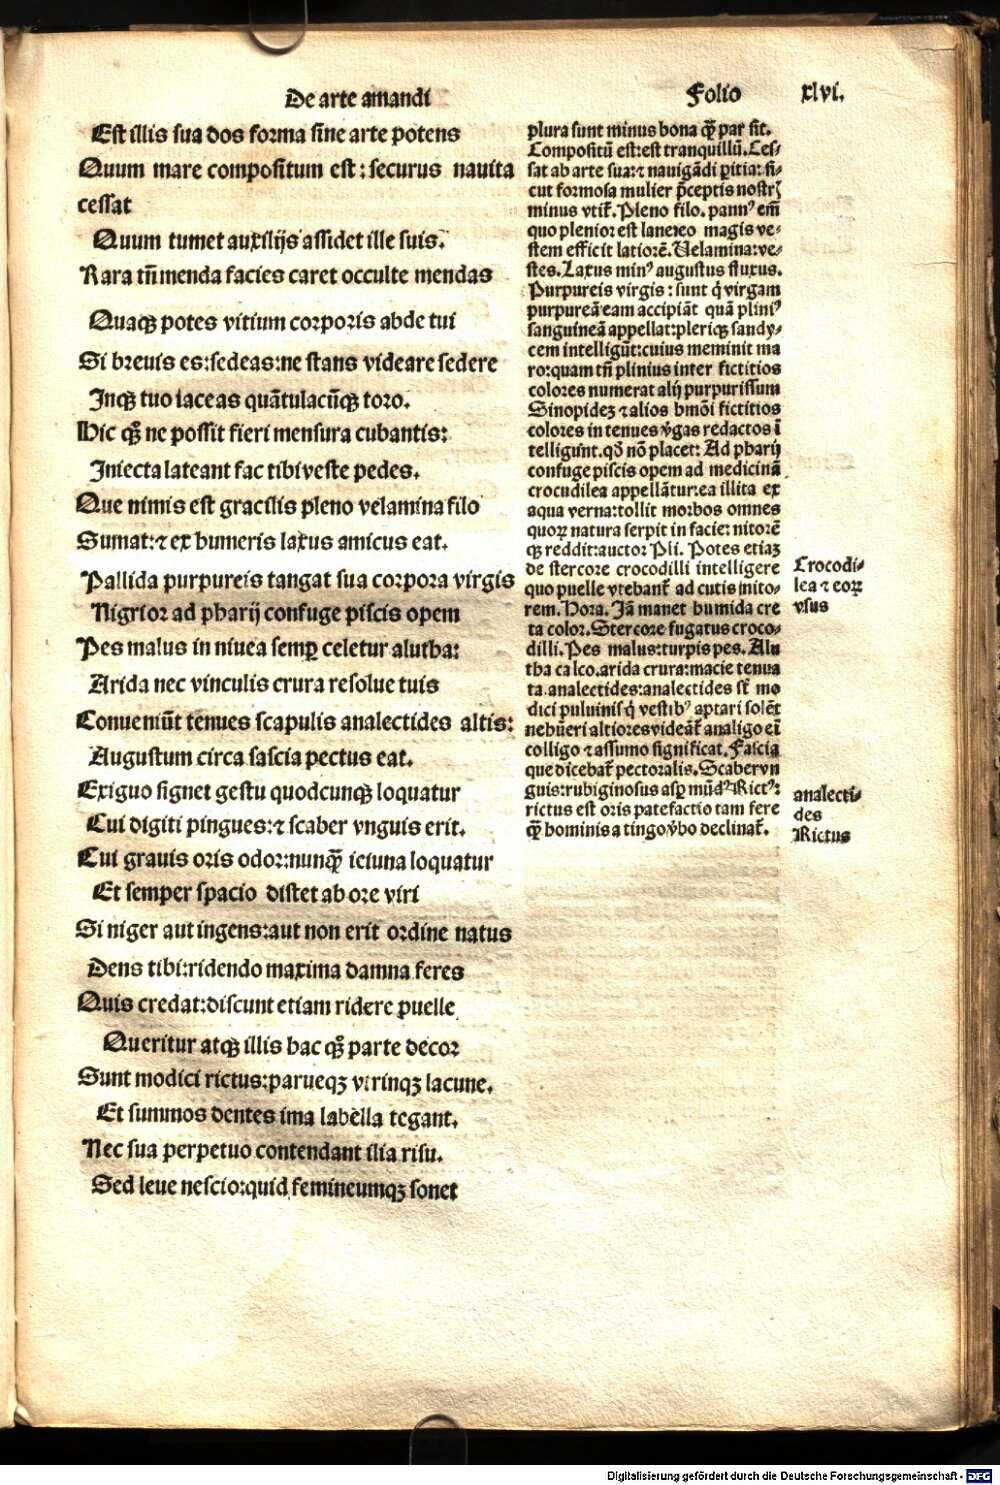 De arte amandi
Folio xlvi.
Est illis sua dos forma sine arte potens
Quum mare compositum est: securus nauita
cessat
Quum tumet auxilijs assidet ille suis.
Rara tñ menda facies caret occulte mendas
Quaqꝫ potes vitium corporis abde tui
Si breuis es: sedeas: ne stans videare sedere
Inqꝫ tuo iaceas quãtulacũqꝫ toro.
Hic qꝫ ne possit fieri mensura cubantis:
Iniecta lateant fac tibi veste pedes.
Que nimis est gracilis pleno velamina filo
Sumat: ⁊ ex humeris laxus amicus eat.
Pallida purpureis tangat sua corpora virgis
Nigrior ad pharij confuge piscis opem
Pes malus in niuea semꝑ celetur alutha:
Arida nec vinculis crura resolue tuis
Conueniũt tenues scapulis analectides altis:
Augustum circa fascia pectus eat.
Exiguo signet gestu quodcunqꝫ loquatur
Cui digiti pingues: ⁊ scaber vnguis erit.
Cui grauis oris odor: nunꝗ̃ ieiuna loquatur
Et semper spacio distet ab ore viri
Si niger aut ingens: aut non erit ordine natus
Dens tibi: ridendo maxima damna feres
Quis credat: discunt etiam ridere puelle
Queritur atqꝫ illis hac qꝫ parte decor
Sunt modici rictus: parueqꝫ vtrinqꝫ lacune.
Et summos dentes ima labella tegant.
Nec sua perpetuo contendant ilia risu.
Sed leue nescio: quid femineumqꝫ sonet
plura sunt minus bona ꝗ̃ par sit.
Compositũ est: est tranquillũ. Ces⸗
sat ab arte sua: ⁊ nauigãdi ꝑitia: si⸗
cut formosa mulier p̃ceptis nostrꝭ
minus vtit̃. Pleno filo. pannꝰ em̃
quo plenior est lane: eo magis ve⸗
stem efficit latiorẽ. Velamina: ve⸗
stes. Laxus minꝰ augustus fluxus.
Purpureis virgis: sunt q̇ virgam
purpureã eam accipiãt quã pliniꝰ
sanguineã appellat: pleriqꝫ sandy⸗
cem intelligũt: cuius meminit ma
ro: quam tñ plinius inter fictitios
colores numerat alij purpurissum
Sinopidẽ ⁊ alios hmõi fictitios
colores in tenues v̓gas redactos ĩ
telligunt. qđ nõ placet: Ad pharij
confuge piscis opem ad medicinã
crocudilea appellãtur: ea illita ex
aqua verna: tollit morbos omnes
quoꝝ natura serpit in facie: nitorẽ
qꝫ reddit: auctor Pli. Potes etiaꝫ
de stercore crocodilli intelligere
quo puelle vtebant̃ ad cutis nito⸗
rem. Hora. Iã manet humida cre
ta color. Stercore fugatus croco⸗
dilli. Pes malus: turpis pes. Alu
tha calco. arida crura: macie tenua
ta. analectides: analectides st̃ mo
dici puluini q̇ vestibꝰ aptari solẽt
ne hũeri altiores videãt̃ analigo eĩ
colligo ⁊ assumo significat. Fascia
que dicebat̃ pectoralis. Scaber vn
guis: rubiginosus asꝑ mũdꝰ Rictꝰ:
rictus est oris patefactio tam fere
ꝗ̃ hominis a tingo v̓bo declinat̃.
Crocodi⸗
lea ⁊ eoꝝ
vsus
analecti⸗
des
Rictus
Digitalisierung gefördert durch die Deutsche Forschungsgemeinschaft - DFG